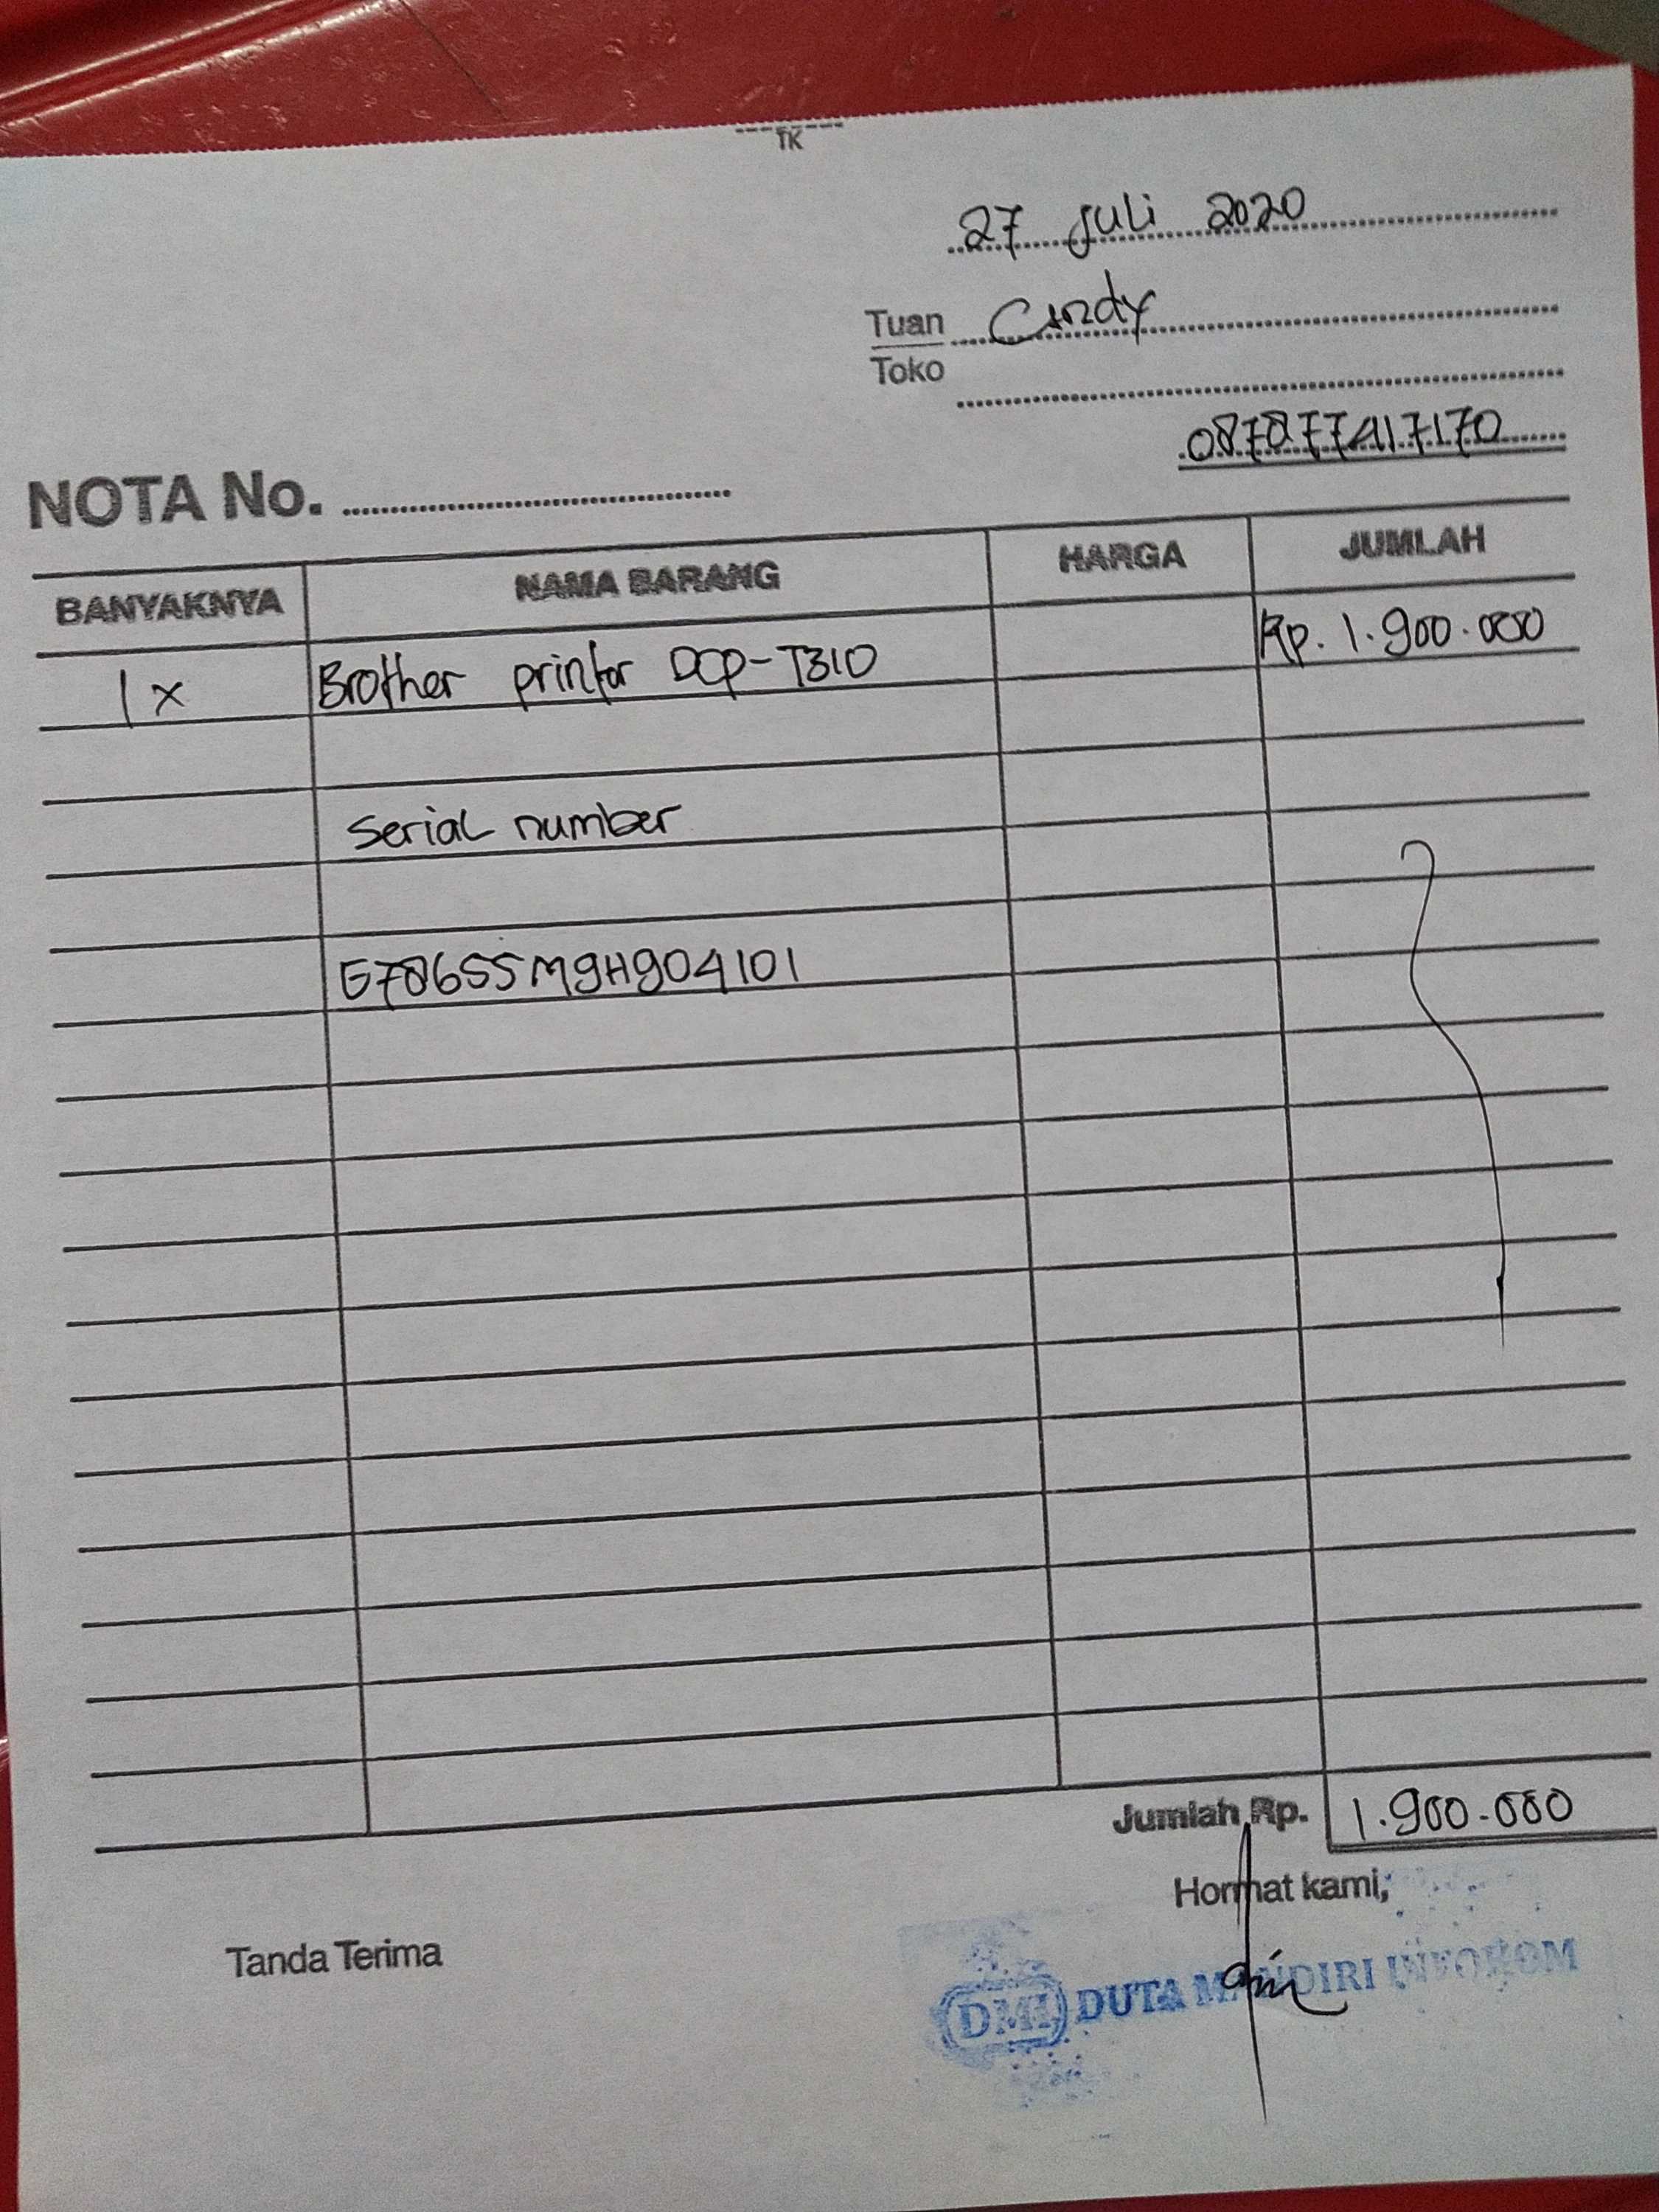 TK
27 Juli 2020
Tuan Cindy
Toko
087877417170
NOTA No.
BANYAKNYA NAMA BARANG HARGA JUMLAH
1x Brother printer DCP-T310 Rp. 1.900.000
Serial number
E78655M9H904101
Jumlah Rp. 1.900.000
Hormat kami,
Tanda Terima
DMI DUTA MANDIRI INFOKOM